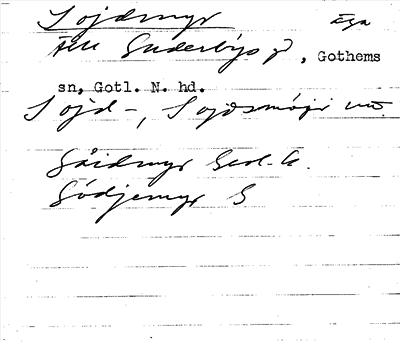 Sojdmyr äga
till Suderbys gd, Gothems
sn, Gotl. N. hd.
Sojd-, Sojdsmöjr
Gåidmyr Geol. k.
Södjemyr G